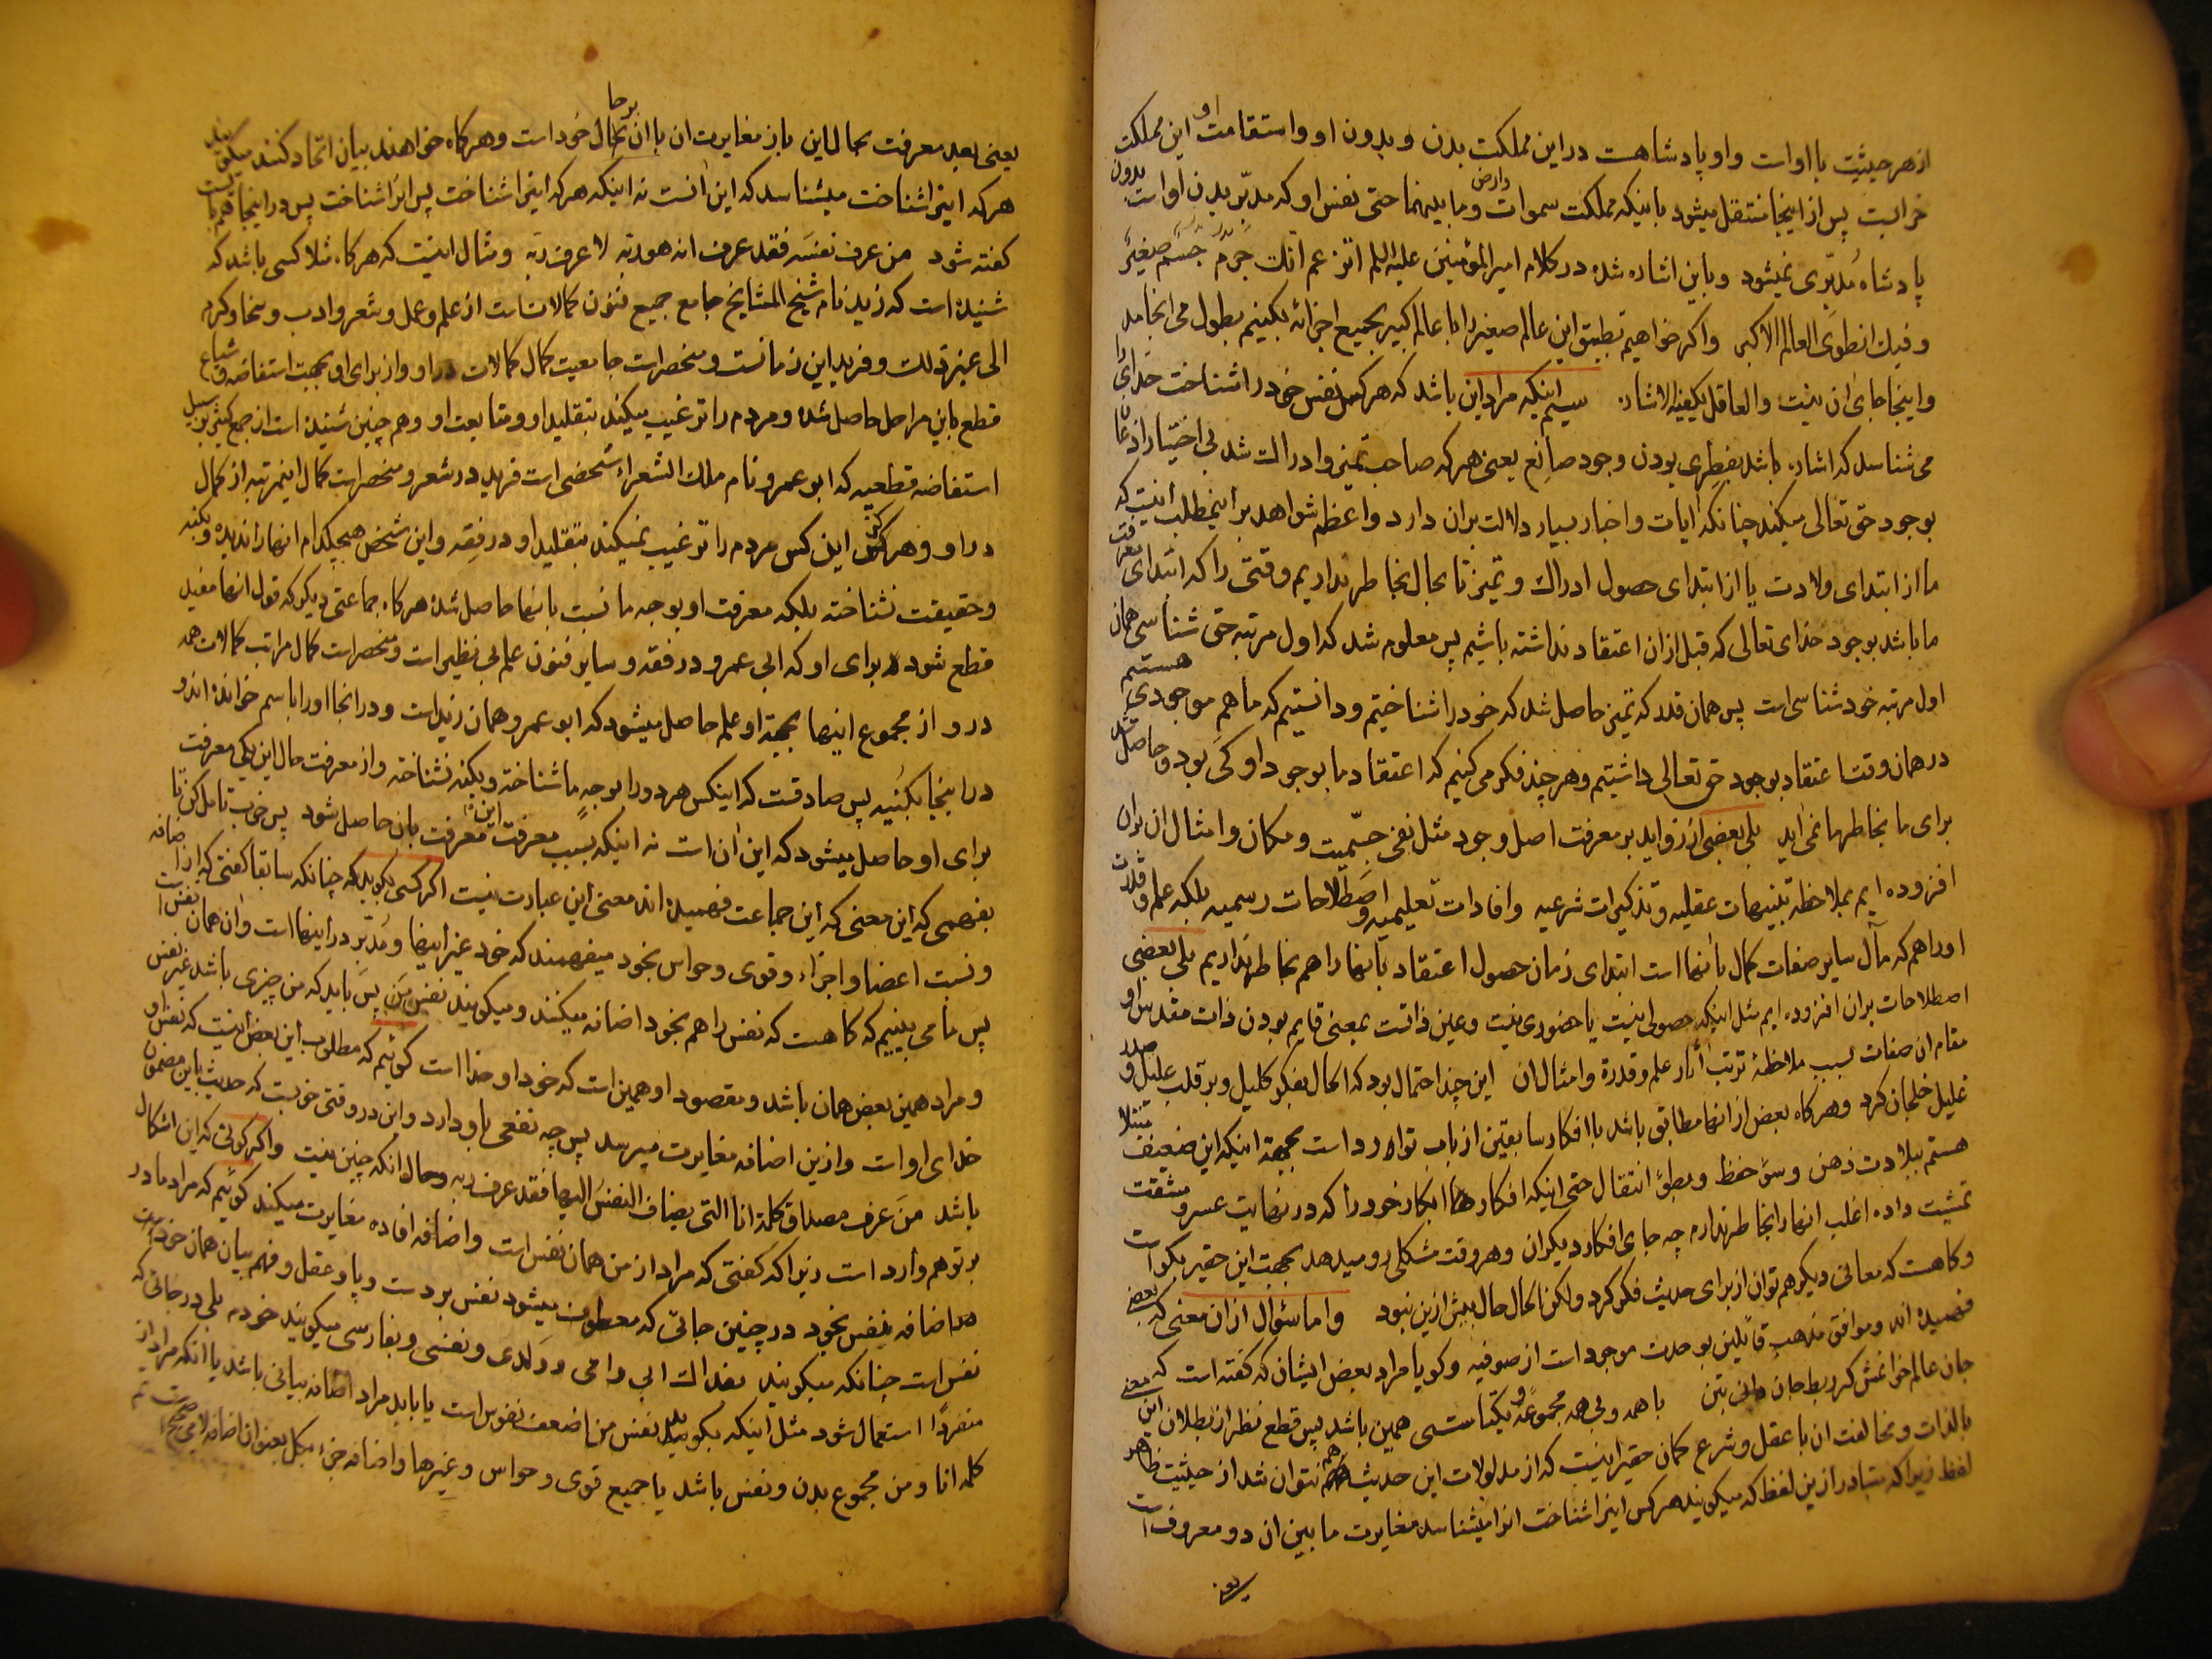 از هر حیثیت با اوات و او پادشاهست در این مملکت بدن و بدون او و استقامت او این مملکت
خرابست پس از اینجا منتقل میشود باینکه مملکت سموات وارض و ما بینهما حتی نفس او که مدبّر بدن اوات بدون
پادشاه مُدبّری نمیشود و باین اشاره شده در کلام امیر المؤمنین علیه السلم اتزعم انّك جرم صغیر
و فیك انطوی العالم الاکبر و اکر خواهیم تطبیق این عالم صغیر را با عالم کبیر بجمیع اجزائه بکنیم بطول می انجامد
و اینجا جای ان نیت و العاقل یکفیه الاشاره سیم اینکه مراد این باشد که هرکس نفس خود را شناخت خدای را
می شناسد که اشاره باشد بفطری بودن وجود صانع یعنی هرکه صاحب تمیز و ادراك شد بی اختیار اذعان
بوجود حق تعالی میکند چنانکه ایات و اخبار بسیار دلالت بران دارد و اعظم شواهد بر اینمطلب اینیت که
ما از ابتدای ولادت یا از ابتدای حصول ادراك و تمیز تا بحال بخاطر نداریم وقتی را که ابتدای معرفت
ما باشد بوجود خدای تعالی که قبل ازان اعتقاد نداشته باشیم پس معلوم شد که اول مرتبه حق شناسی همان
اول مرتبه خود شناسی است پس همان قدر که تمیز حاصل شد که خود را شناختیم و دانستیم که ما هم موجودی هستیم
در همان وقت اعتقاد بوجود حق تعالی داشتیم و هر چند فکر می کنیم که اعتقاد ما بوجود او کی بود و حاصل شد
برای ما بخاطرها نمی اید بلی بعضی از زواید بر معرفت اصل وجود مثل نفی جسمیت و مکان و امثال ان بران
افزوده ایم بملاحظه تنبیهات عقلیه و تذکیرات شرعیه و افادات تعلیمیه و اصطلاحات رسمیه بلکه علم و قدرت
او را هم که مآل سایر صفات کمال بانها است ابتدای زمان حصول اعتقاد بانها را هم بخاطر نداریم بلی بعضی
اصطلاحات بران افزوده ایم مثل اینکه حصولی نیت یا حضوری نیت و عین ذاتست بمعنی قایم بودن ذات مقدس او
مقام ان صفات بسبب ملاحظهٔ ترتب آثار علم و قدرة و امثال ان این چند احتمال بود که الحال بفکر کلیل و بر قلب علیل و صدر
غلیل خلجان کرد و هرکاه بعض از انها مطابق باشد با افکار سابقین از باب توارد است بجهة اینکه این ضعیف مبتلا
هستم ببلادت ذهن و سوء حفظ و بطؤ انتقال حتی اینکه افکار خود را که در نهایت عسر و مشقت
تمشیت داده اغلب انها را بخاطر ندارم چه جای افکار دیکران و هر وقت مشکلی رو میدهد بجهت این حقیر بکر است
و کاهست که معانی دیکر هم توان از برای حدیث فکر کرد ولکن الحال حال بیش ازین نبود و اما سؤال از ان معنی که بعض
فهمیده اند و موافق مذهب قائلین بوحدت موجود است از صوفیه و کویا مراد بعض ایشان که کفته است که
جان عالم خوانمش کر ربط جان دانی بتن با همه و بی همه مجموعه و یکتاستی همین باشد پس قطع نظر از بطلان این معنی
بالذات و مخالفت ان با عقل و شرع کمان حقیر اینیت که از مدلولات این حدیث هم نتوان شد از حیثیت ظاهر
لفظ زیرا که متبادر ازین لفظ که میکویند هرکس اینرا شناخت انرا میشناسد مغایرت ما بین ان دو معروف است
یعنی
یعنی بعد معرفت بحال این باز مغایرت ان با ان بر جا بحال خود است و هرکاه خواهند بیان اتحاد کنند میکویند
هرکه اینرا شناخت میشناسد که این آنست نه اینکه هرکه اینرا شناخت پس انرا شناخت پس در اینجا هم بایست
کفته شود من عرف نفسَه فقد عرف انه هو ربّه لا عرف ربّه و مثال اینیت که هرکاه مثلا کسی باشد که
شنیده است که زید نام شیخ المشایخ جامع جمیع فنون کمالات است از علم و عمل و شعر و ادب و سخا و کرم
الی غیر ذلك و فرید این زمانست و منحصر است جامعیت کمال کمالات در او و از برای او بجهت استفاضه و شیاع
قطع باین مراحل حاصل شده و مردم را ترغیب میکند بتقلید او و متابعت او و هم چنین شنیده است از جمع کثیر بر سبیل
استفاضه قطعیه که ابو عمرو نام ملك الشعراء شخصی است فرید در شعر و منحصر است کمال اینمرتبه از کمال
در او و هرکز این کس مردم را ترغیب نمیکند بتقلید او در فقه و این شخص هیچکدام انها را ندیده و بکنه
و حقیقت نشناخته بلکه معرفت او بوجه ما نسبت بانها حاصل شده هرکاه جماعتی دیکر که قول انها مفید
قطع شود برای او که ابی عمرو در فقه و سایر فنون علم بی نظیر است و منحصر است کمال مراتب کمالات همه
در و از مجموع اینها بجهة او علم حاصل میشود که ابو عمرو همان زید است و در انجا او را باسم خوانده اند و
در اینجا بکنیه پس صادقست که اینکس هر دو را بوجه ما شناخته و بکنه نشناخته و از معرفت حال این یکی معرفت
برای او حاصل میشود که این ان است نه اینکه بسبب معرفت این معرفت بان حاصل شود پس خوب تامل کن تا
بفهمی که این معنی که این جماعت فهمیده اند معنی این عبارت نیت اکر کسی بکوید که چنانکه سابقا کفتی که از اضافه
و نسبت اعضا و اجزاء و قوی و حواس بخود میفهمند که خود غیر اینها و مُدبّر در اینها است و ان همان نفس است
پس ما می بینیم که کاهست که نفس را هم بخود اضافه میکنند و میکویند نفس من پس باید که من چیزی باشد غیر نفس
و مراد همین بعض همان باشد و مقصود او همین است که خود او خدا است کوئیم که مطلوب این بعض اینیت که نفس او
خدای اوات و ازین اضافه مغایرت میرسد پس چه نفعی باو دارد و این در وقتی خوبست که حدیث باین مضمون
باشد من عرف مصداق کلمة انا التی یضاف النفس الیها فقد عرف ربه و حال انکه چنین نیت و اکر کوئی که این اشکال
بر تو هم وارد است زیرا که کفتی که مراد از من همان نفس است و اضافه افاده مغایرت میکند کوئیم که مراد ما در
اضافه بنفس بخود در چنین جائی که معطوف میشود نفس بر دست و پا و عقل و فهم بیان همان خود است
نفس است چنانکه میکویند بفداك ابی و امی و ولدی و نفسی و بفارسی میکویند خودم بلی در جائی که
منفردًا استعمال شود مثل اینکه بکویند نفس من اضعف نفوس است یا باید مراد اضافه بیانی باشد یا انکه مراد از
کلمه انا و من مجموع بدن و نفس باشد یا جمیع قوی و حواس و غیرها و اضافه جزء بکل بعنوان اضافه لامی صحیح است